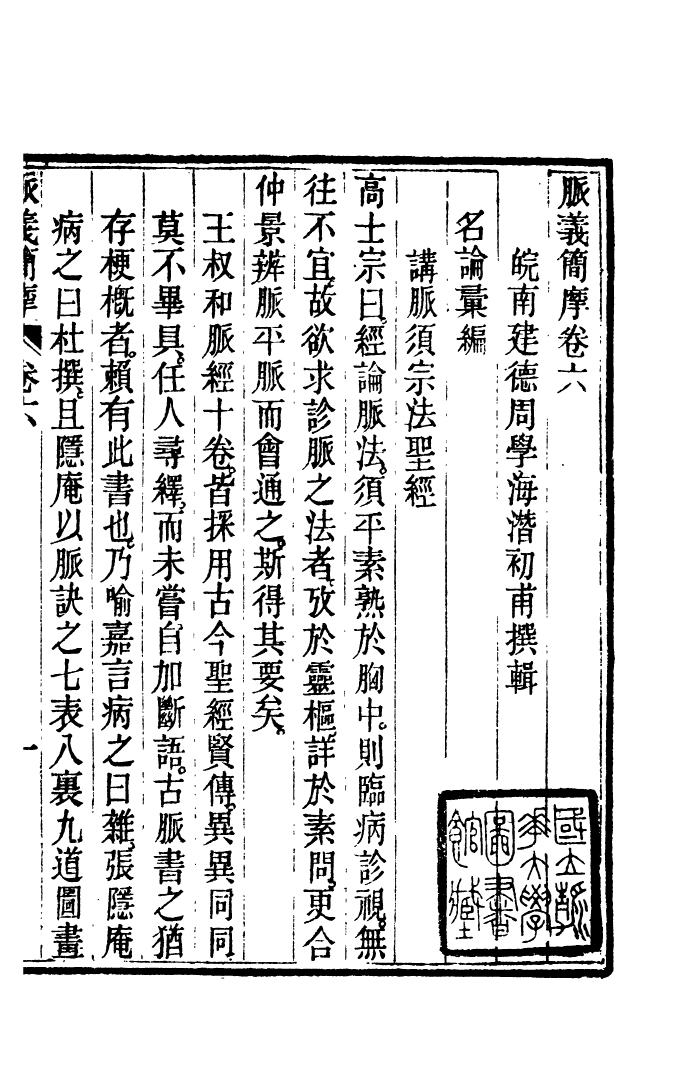 脈義簡摩卷六
皖南建德周學海潛初甫撰輯
名論彙編
講脈須宗法聖經
高士宗曰經論脈法須平素熟於胸中則臨病診視無
往不宜故欲求診脈之法者攷於靈樞詳於素問更合
仲景辨脈平脈而會通之斯得其要矣
王叔和脈經十卷皆採用古今聖經賢傳異異同同
莫不畢具任人尋繹而未嘗自加斷語古脈書之猶
存梗槪者賴有此書也乃喻嘉言病之曰雜張隱庵
病之曰杜撰且隱庵以脈訣之七表八裏九道圖畫
脈義簡摩 卷六 一
國立北平大學圖書館藏